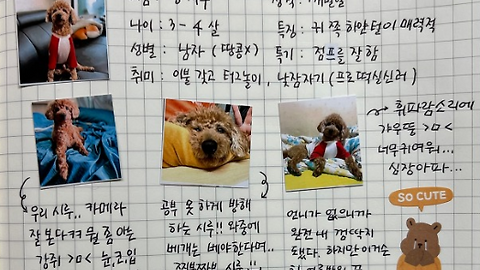 나이 : 3 - 4 살
특징 : 귀 쪽 하얀 털이 매력적
성별 : 남자 (땅콩x)
특기 : 점프를 잘함
취미 : 이불 갖고 터그놀이, 낮잠자기 (프로떡실신러)
휘파람소리에
갸우뚱 >ㅁ<
너무귀여워...
심장아파...
우리 시루.. 카메라
잘 본다ㅋㅋ 뭘 좀 아는
강쥐 >ㅁ< 눈코입
공부 못 하게 방해
하는 시루 !! 와중에
베개는 베야한다며..
언니가 없으니까
완전 내 껌딱지
됐다. 하지만 이거슨
SO CUTE